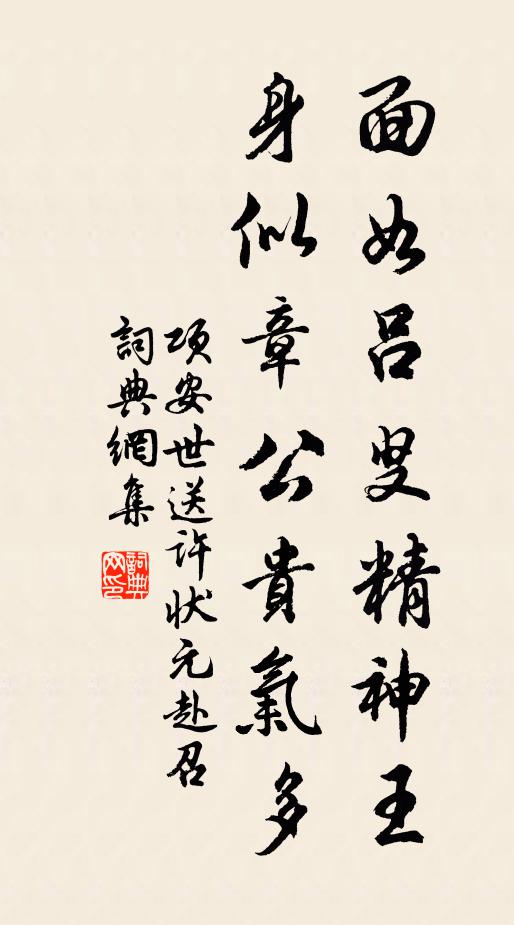 面如吕叟精神王
身似章公貴氣多
項安世送许状元赴召
詞典網集
詞典网印